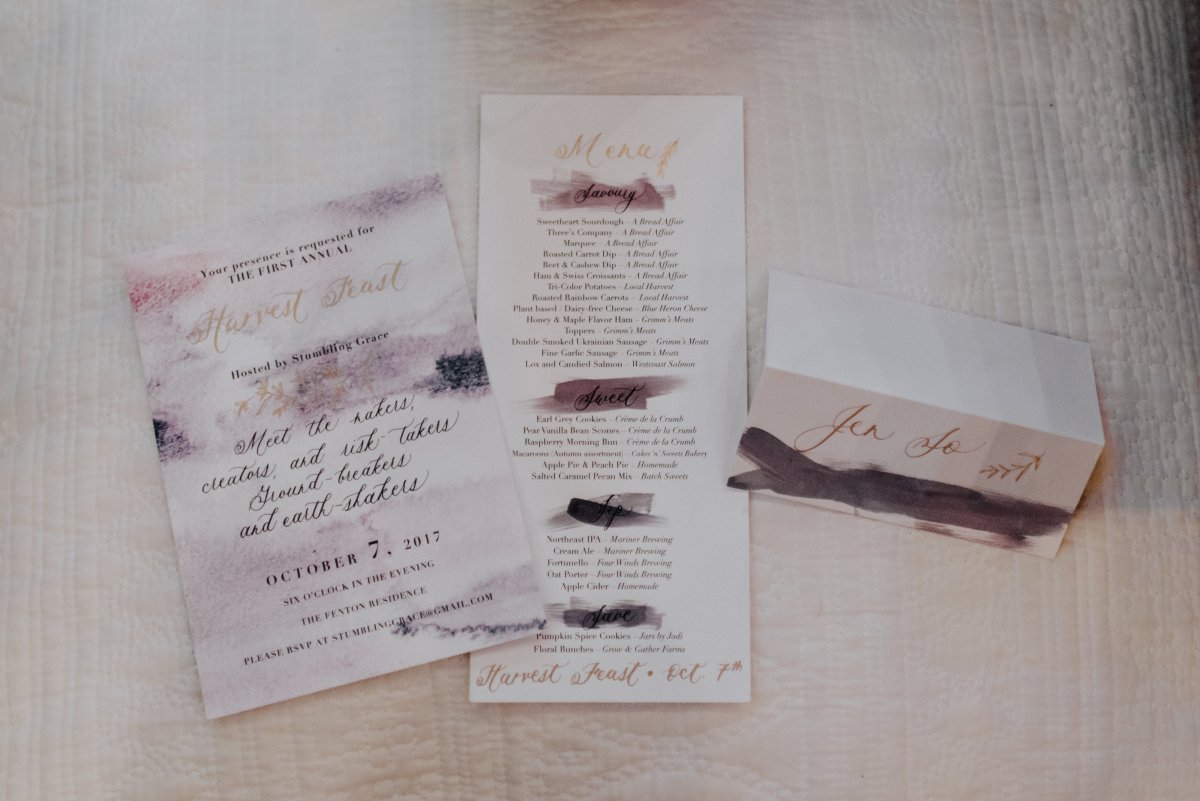 Your presence is requested for
THE FIRST ANNUAL
Harvest Feast
Hosted by Stumbling Grace
Meet the makers,
creators, and risk-takers
Ground-breakers
and earth-shakers
OCTOBER 7, 2017
SIX O'CLOCK IN THE EVENING
THE FENTON RESIDENCE
PLEASE RSVP AT STUMBLINGGRACE@GMAIL.COM
Menu
Savoury
Sweetheart Sourdough – A Bread Affair
Three's Company – A Bread Affair
Marquee – A Bread Affair
Roasted Carrot Dip – A Bread Affair
Beet & Cashew Dip – A Bread Affair
Ham & Swiss Croissants – A Bread Affair
Tri-Color Potatoes – Local Harvest
Roasted Rainbow Carrots – Local Harvest
Plant based / Dairy-free Cheese – Blue Heron Cheese
Honey & Maple Flavor Ham – Grimm's Meats
Toppers – Grimm's Meats
Double Smoked Ukrainian Sausage – Grimm's Meats
Fine Garlic Sausage – Grimm's Meats
Lox and Candied Salmon – Westcoast Salmon
Sweet
Earl Grey Cookies – Crème de la Crumb
Pear Vanilla Bean Scones – Crème de la Crumb
Raspberry Morning Bun – Crème de la Crumb
Macaroons (Autumn assortment) – Cakes 'n' Sweets Bakery
Apple Pie & Peach Pie – Homemade
Salted Caramel Pecan Mix – Batch Sweets
Sip
Northeast IPA – Mariner Brewing
Cream Ale – Mariner Brewing
Fortunello – Four Winds Brewing
Oat Porter – Four Winds Brewing
Apple Cider – Homemade
Save
Pumpkin Spice Cookies – Jars by Jodi
Floral Bunches – Grow & Gather Farms
Harvest Feast • Oct. 7th
Jen Jo